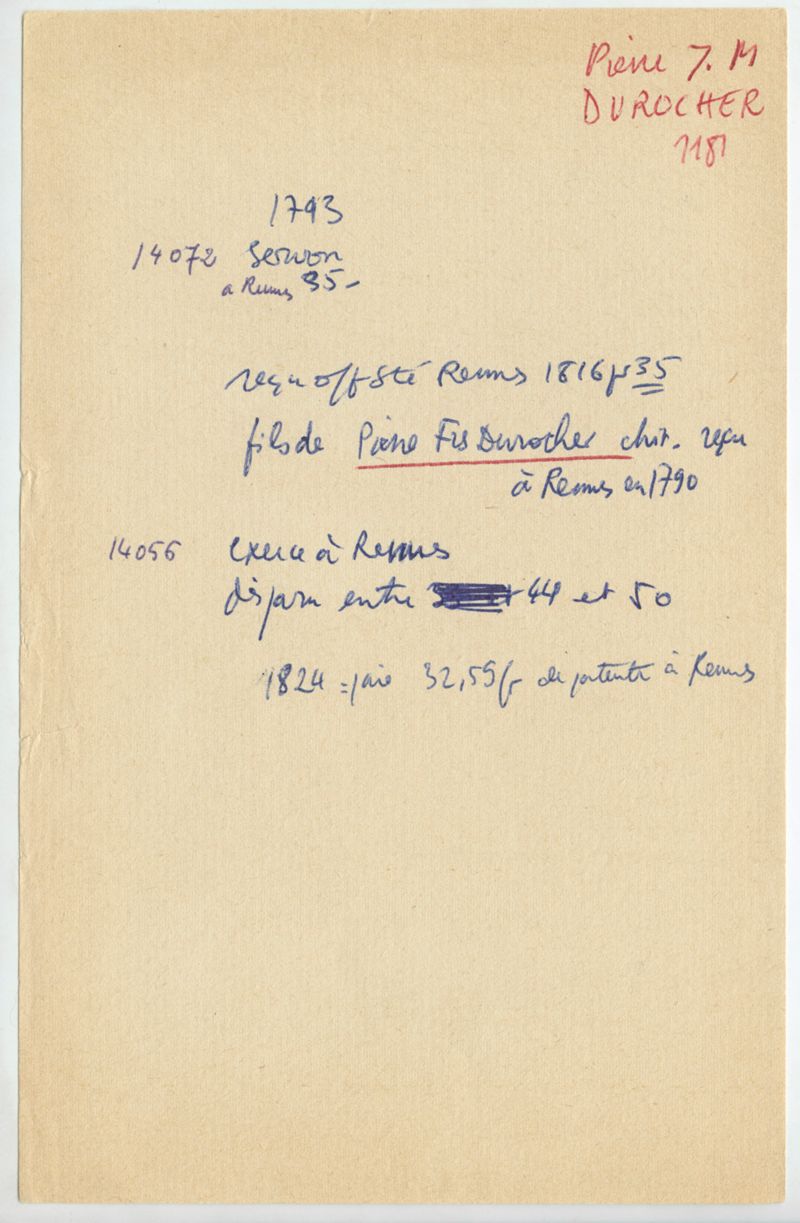 Pierre J. M
DUROCHER
1181
1793
14072 Servon
à Rennes 35 -
reçu off Sté Rennes 1816 pr 35
fils de Pierre Frs Durocher chir. reçu
à Rennes en 1790
14056 exerce à Rennes
disparu entre 44 et 50
1824 = paie 32,55 fr de patente à Rennes